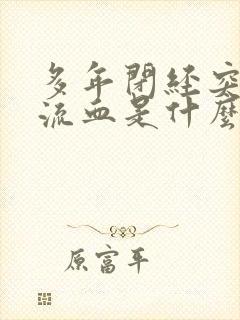 多年閉経突
流血是什麼
原富平